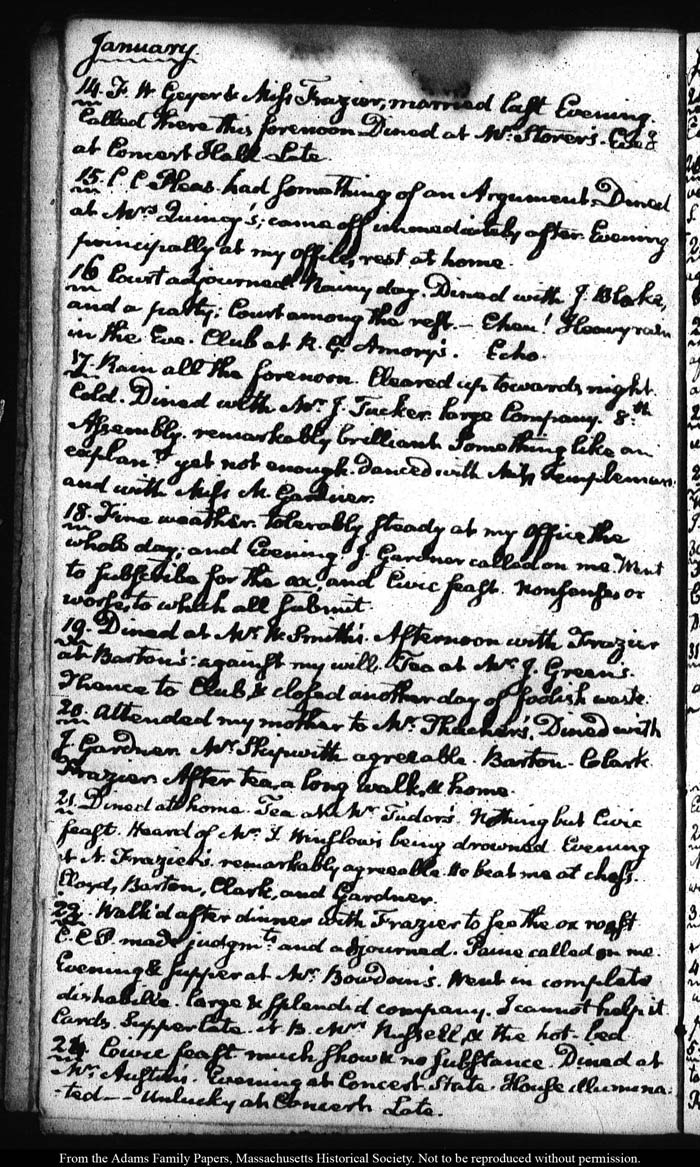 January.
14. F. W Geyer & Miss Frazier, married last Evening.
Called there this forenoon Dined at Mr. Storer's. Eve.g
at Concert Hall Late.
15. C. C. Pleas. had something of an Argument. Dined
at Mrs. Quincy's; came off immediately after. Evening
principally at my office, rest at home.
16 Court adjourned. Rainy day. Dined with J. Blake,
and a party; Court among the rest. — Cheu! Heavy rain
in the Eve. Club at R. G Amory's. Echo.
17. Rain all the forenoon. Cleared up towards night.
Cold. Dined with Mr. J. Tucker. large Company. 8.th
Assembly. remarkably brilliant. Something like an
explan.n yet not enough. Danced with Miss Templeman
and with Miss M. Gardner.
18. Fine weather. tolerably steady at my office the
whole day; and Evening. J. Gardner called on me. Went
to subscribe for the ox, and Civic feast. nonsense or
worse, to which all submit.
19. Dined at Mr. W. Smith's. Afternoon with Frazier
at Barton's: against my will. Tea at Mr. J. Green's.
Thence to Club, & closed another day of foolish waste.
20. Attended my mother to Mr. Thacher's. Dined with
J. Gardner. Mr. Skipwith agreeable. Barton. Clark.
Frazier. After tea, a long walk, & home.
21. Dined at home. Tea at Mr. Tudor's. Nothing but Civic
feast. Heard of Mr. I. Winslow's being drowned. Evening
at N. Frazier's. remarkably agreeable. He beat me at chess.
Lloyd, Barton, Clark, and Gardner.
22. Walk'd after dinner with Frazier to see the ox roast
C. C. P. made judgm.ts and adjourned. Paine called on me.
Evening & supper at Mr. Bowdoin's. Went in complete
dishabille. large & splendid company. I cannot help it
Cards. Supper late. N. B. Mrs. Russell, & the hot-bed
24. Civic feast much show & no substance. Dined at
Mr. Austin's. Evening at Concert. State-House illumina-
-ted — Unlucky at Concert. Late.
From the Adams Family Papers, Massachusetts Historical Society. Not to be reproduced without permission.